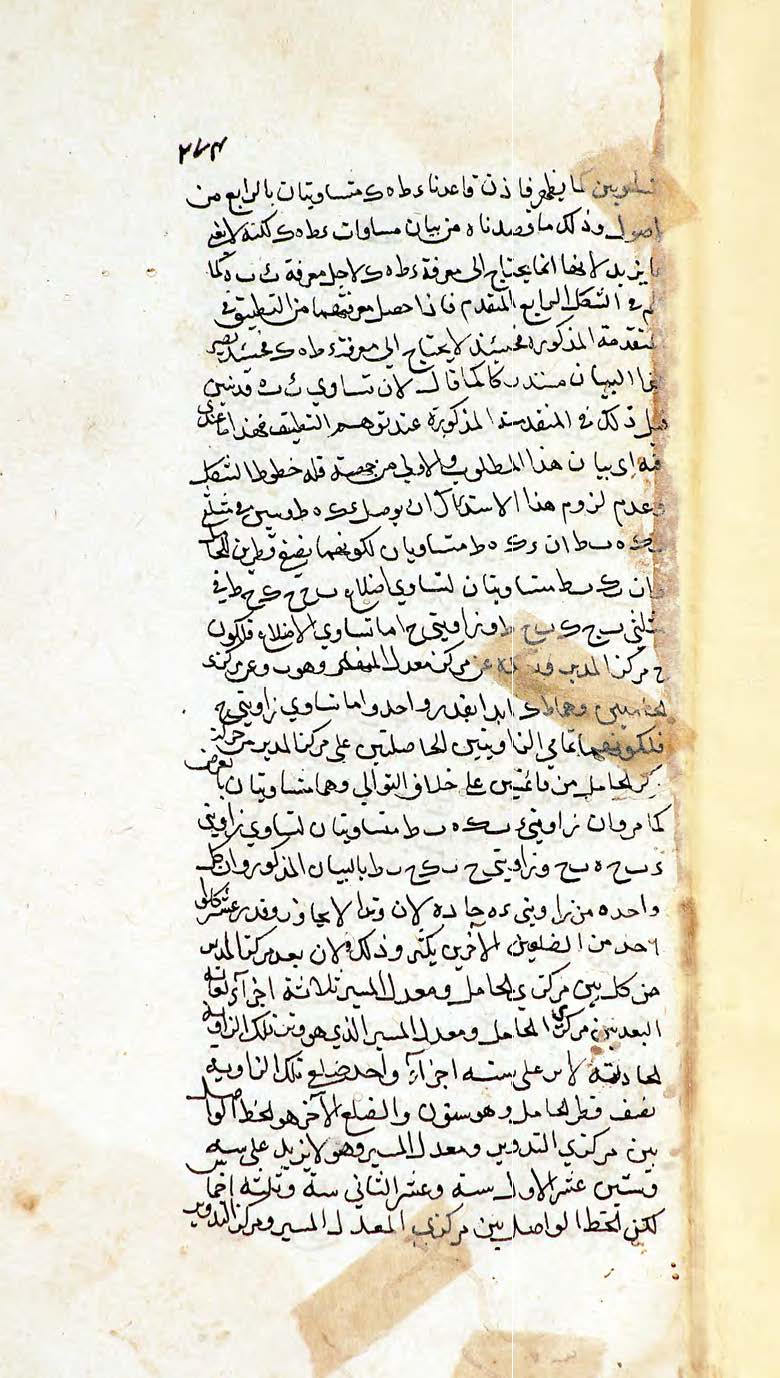 ٢٧٤
كما يظهر فاذن قاعدتا ء ط ه ك متساويتان بالرابع من
اصول وذلك ما قصدناه من بيان مساوات ء ط ه ك لكنه لا يفيد
ما يزيد لانها انما يحتاج الى معرفة ء ط ه ك لاجل معرفة ب ه كما
في الشكل الرابع المتقدم فاذا حصل معرفتهما من التطبيق في
المتقدمة المذكورة فحينئذ لا يحتاج الى معرفة ء ط ه ك فحينئذ يصير
هذا البيان مستدركا كما قال لان تساوي قد تبين
قبل ذلك في المتقدمة المذكورة عند توهم التطبيق فهذا ما عندي
فيه اي بيان هذا المطلوب والاولى من جهة قلة خطوط الشكل
وعدم لزوم هذا الاستدراك ان يوصل ء ك ه ط
ء ك ه ب ط ان ء ك ه ط متساويان لكونهما نصفي قطرين للحامل
وان ب ك ب ط متساويتان لتساوي اضلاع ب ح ح ك ح ط في
مثلثي ب ح ك ب ح ط وزاويتي ح اما تساوي الاضلاع فلكون
ح مركز المدير عن مركز معدل المسير وهو ب وعن مركزي
الحاملين وهما ط ك ابدا بقدر واحد واما تساوي زاويتي ح
فلكونهما تمامي الزاويتين الحاصلتين على مركز المدير من حركة
مركز الحامل من قائمتين على خلاف التوالي وهما متساويتان بالفرض
كما مر وان زاويتي ء ب ك ه ب ط متساويتان لتساوي زاويتي
ء ب ح ه ب ح وزاويتي ح ب ك ح ب ط بالبيان المذكور وان كل
واحده من زاويتي ء ه حادة لان وترها لا يجاوز قدر عشر كل
احد من الضلعين الآخرين بكثير وذلك لان بعد مركز المدير
من كل من مركزي الحامل ومعدل المسير ثلاثة اجزاء فغاية
البعد بين مركزي الحامل ومعدل المسير الذي هو وتر تلك الزاوية
الحادثة لا يزيد على ستة اجزاء واحد ضلعي تلك الزاوية
نصف قطر الحامل وهو ستون والضلع الآخر هو الخط الواصل
بين مركزي التدوير ومعدل المسير وهو لا يزيد على ستة
وستين عشر الاول ستة وعشر الثاني ستة وثلثة اخماس
لكن الخط الواصل بين مركزي المعدل المسير ومركز التدوير